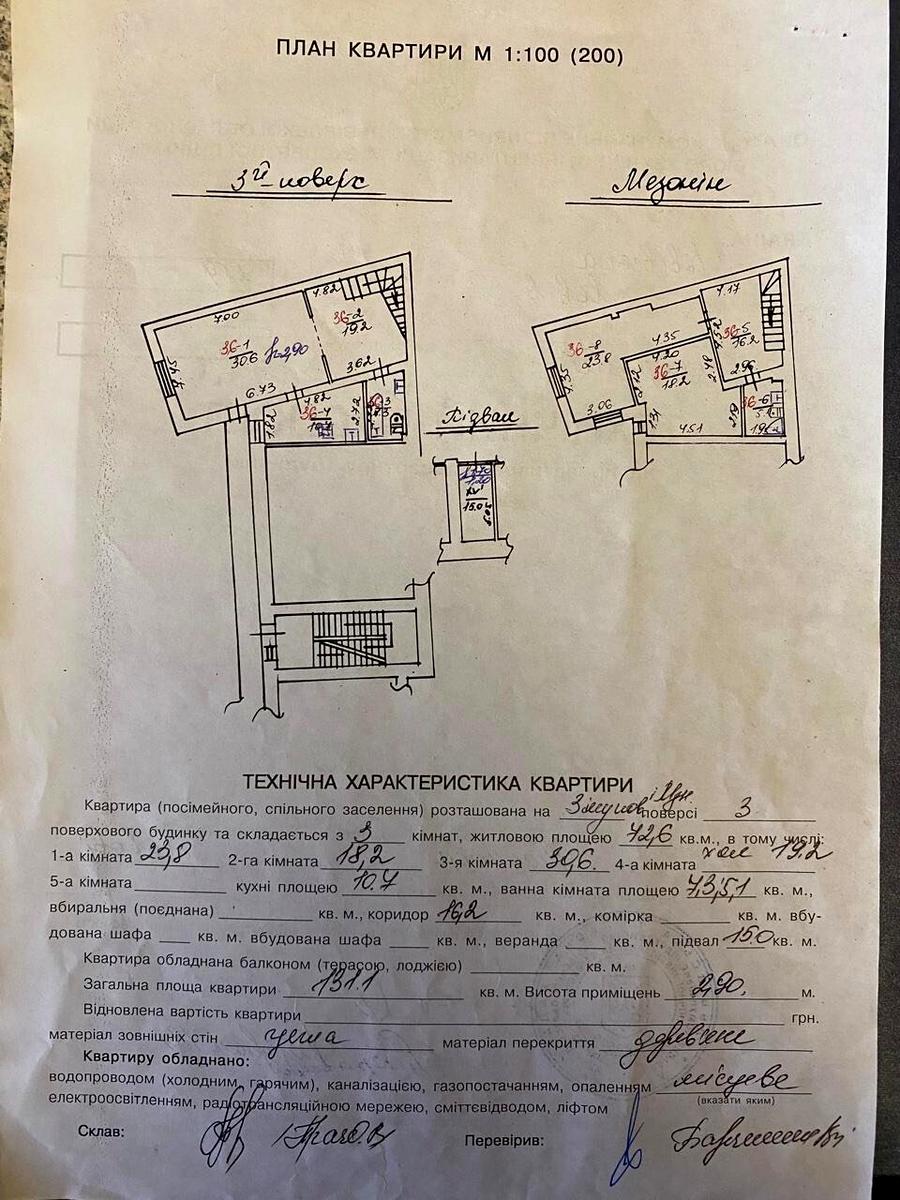 ПЛАН КВАРТИРИ М 1:100 (200)
3й поверх
Мезонін
4.82
7.00
36-2
19.2
36-1
30.6 h=2,90
4.45
3.62
6.73
4.82
36-4
1.82
2.72
Підвал
XV
15.0
6.05
4.17
36-5
16.2
4.35
36-8
23.8
4.20
36-7
18.2
4.35
2.48
2.96
3.06
1.31
4.51
36-6
ТЕХНІЧНА ХАРАКТЕРИСТИКА КВАРТИРИ
Квартира (посімейного, спільного заселення) розташована на поверсі 3
поверхового будинку та складається з 3 кімнат, житловою площею 72,6 кв.м., в тому числі:
1-а кімната 23,8 2-га кімната 18,2 3-я кімната 30,6. 4-а кімната хол 19.2
5-а кімната кухні площею 10.7 кв. м., ванна кімната площею 7,3; 5,1 кв. м.,
вбиральня (поєднана) кв. м., коридор 16,2 кв. м., комірка кв. м. вбу-
дована шафа кв. м. вбудована шафа кв. м., веранда кв. м., підвал 15.0 кв. м.
Квартира обладнана балконом (терасою, лоджією) кв. м.
Загальна площа квартири 131.1 кв. м. Висота приміщень 2,90. м.
Відновлена вартість квартири грн.
матеріал зовнішніх стін цегла матеріал перекриття дерев'яне
Квартиру обладнано:
водопроводом (холодним, гарячим), каналізацією, газопостачанням, опаленням місцеве
(вказати яким)
електроосвітленням, радіотрансляційною мережею, сміттєвідводом, ліфтом
Склав:
Перевірив: